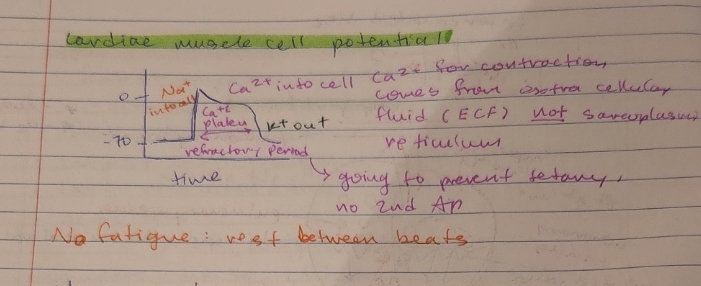 Cardiac muscle cell potential
Na+ into cell
Ca2+ into cell
Ca2+ for contraction
comes from extra cellular
fluid (ECF) not sarcoplasmic
reticulum
0
Ca+2
plateu
K+ out
-70
refractory period
time
going to prevent tetany,
no 2nd AP
No fatigue: rest between beats